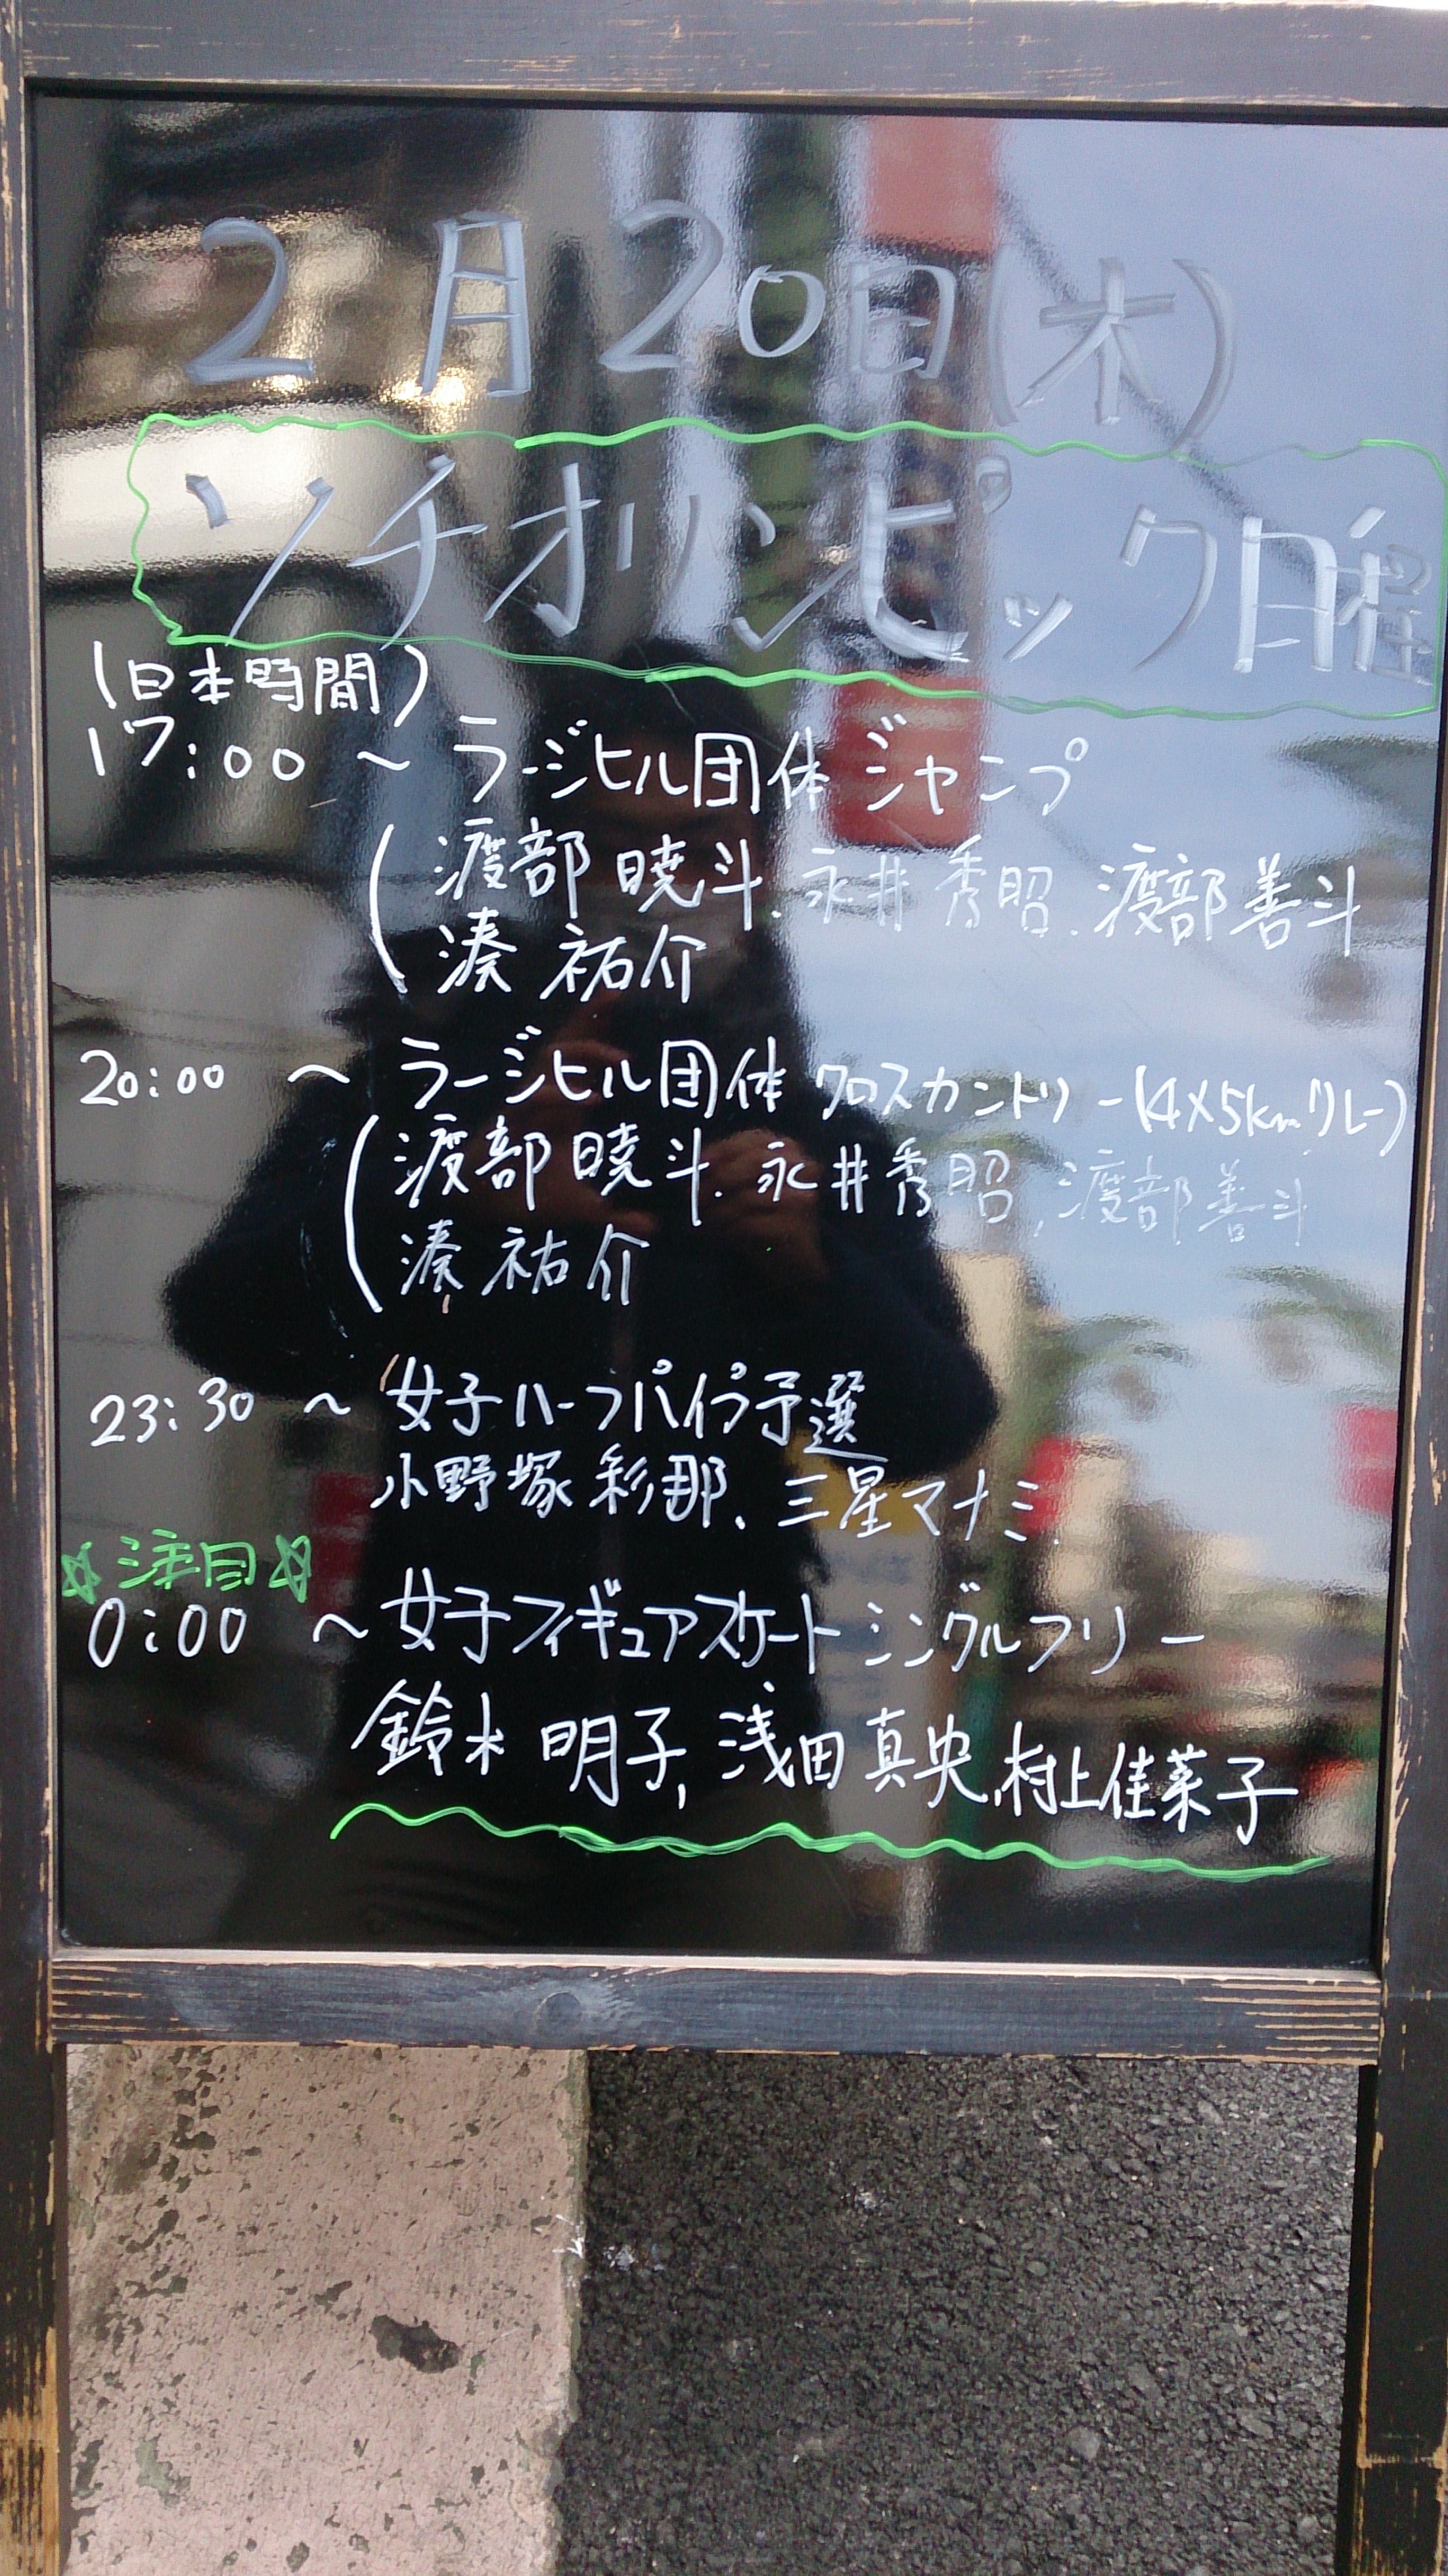 2月20日(木)
ソチオリンピック日程
(日本時間)
17:00 ~ ラージヒル団体ジャンプ
(渡部 暁斗、永井 秀昭、渡部善斗
湊 祐介
20:00 ~ ラージヒル団体 クロスカントリー(4×5kmリレー)
(渡部 暁斗、永井秀昭、渡部善斗
湊 祐介
23:30 ~ 女子ハーフパイプ予選
小野塚 彩那、三星マナミ
☆注目☆
0:00 ~ 女子フィギュアスケート シングルフリー
鈴木 明子, 浅田真央、村上佳菜子